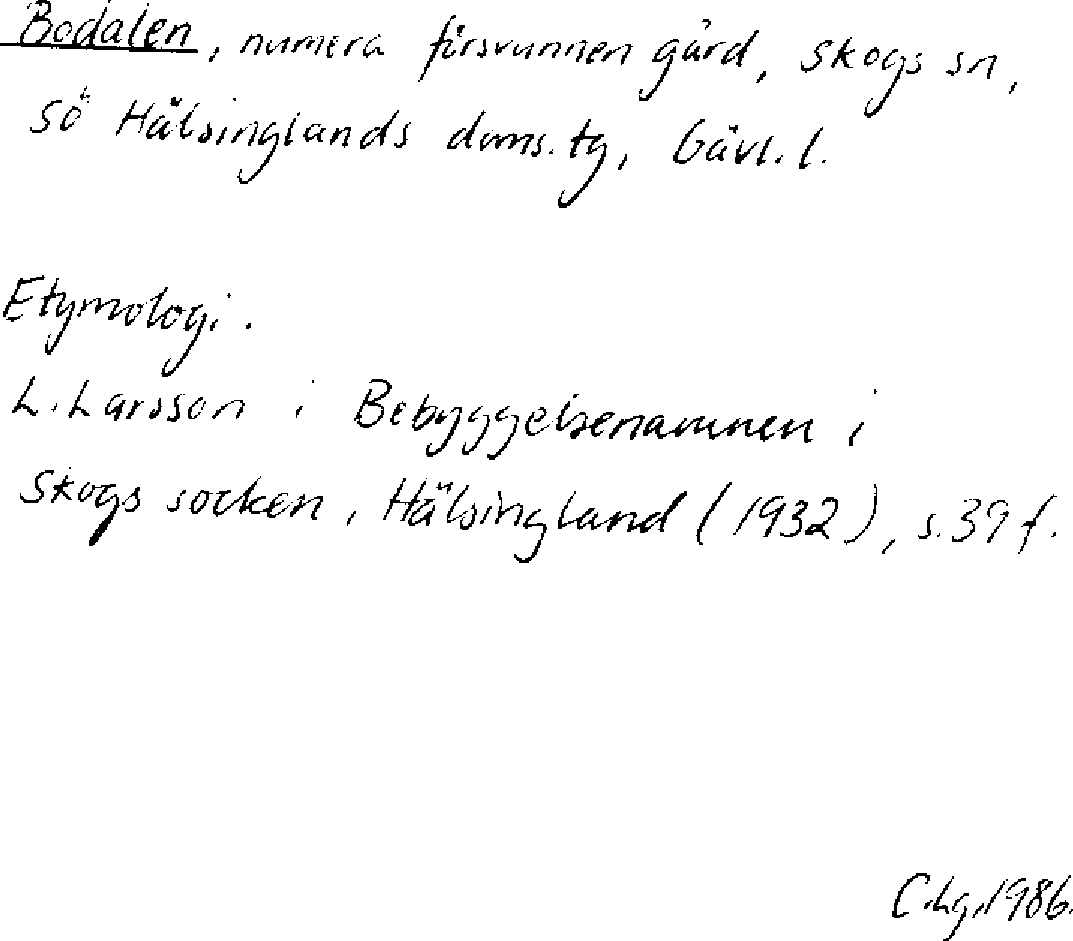 Bodalen, numera försvunnen gård, Skogs sn,
Sö Hälsinglands doms.tg, Gävl.l.
Etymologi.
L. Larsson i Bebyggelsenamnen i
Skogs socken, Hälsingland (1932), s.39 f.
C.Lg.1986.